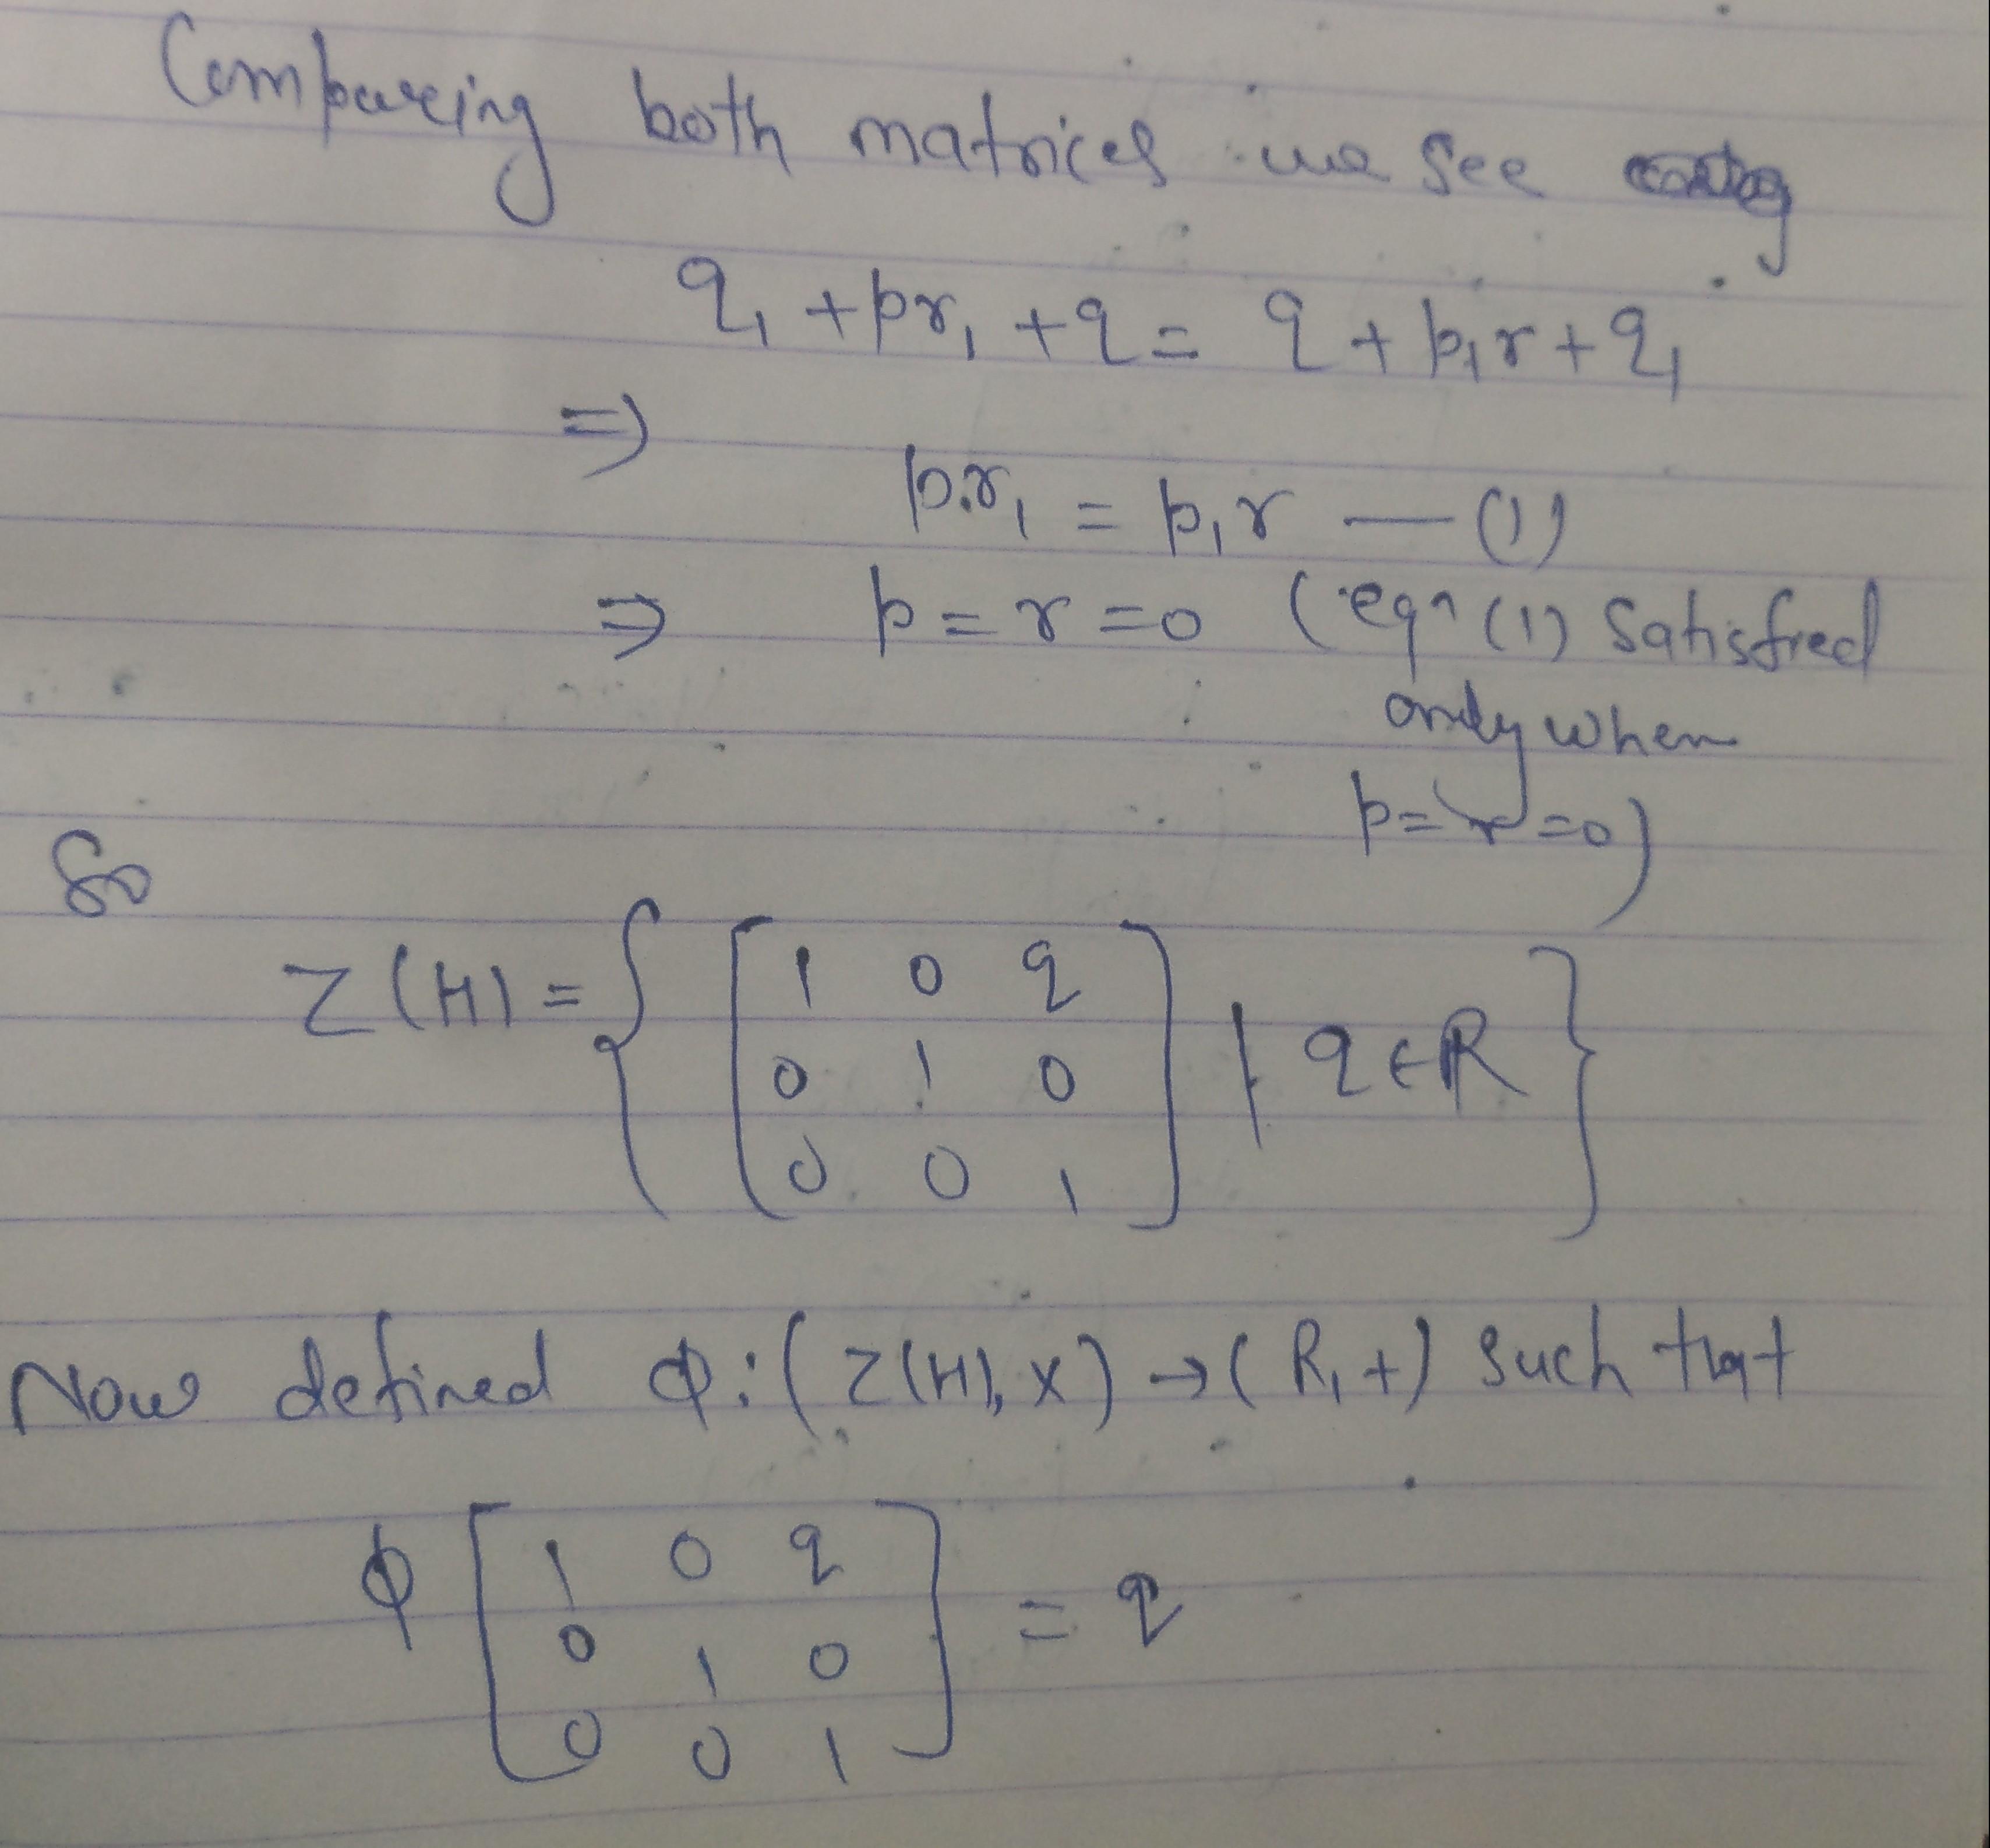 Comparing both matrices we see
q₁ + pr₁ + q = q + p₁r + q₁
⇒
p.r₁ = p₁r — (1)
⇒ p = r = 0 (eqn (1) satisfied
only when
p = r = 0)
So
Z(H) = { [ 1 0 q
0 1 0
0 0 1 ] | q ∈ R }
Now defined φ : (Z(H), ×) → (R, +) such that
φ [ 1 0 q
0 1 0
0 0 1 ] = q